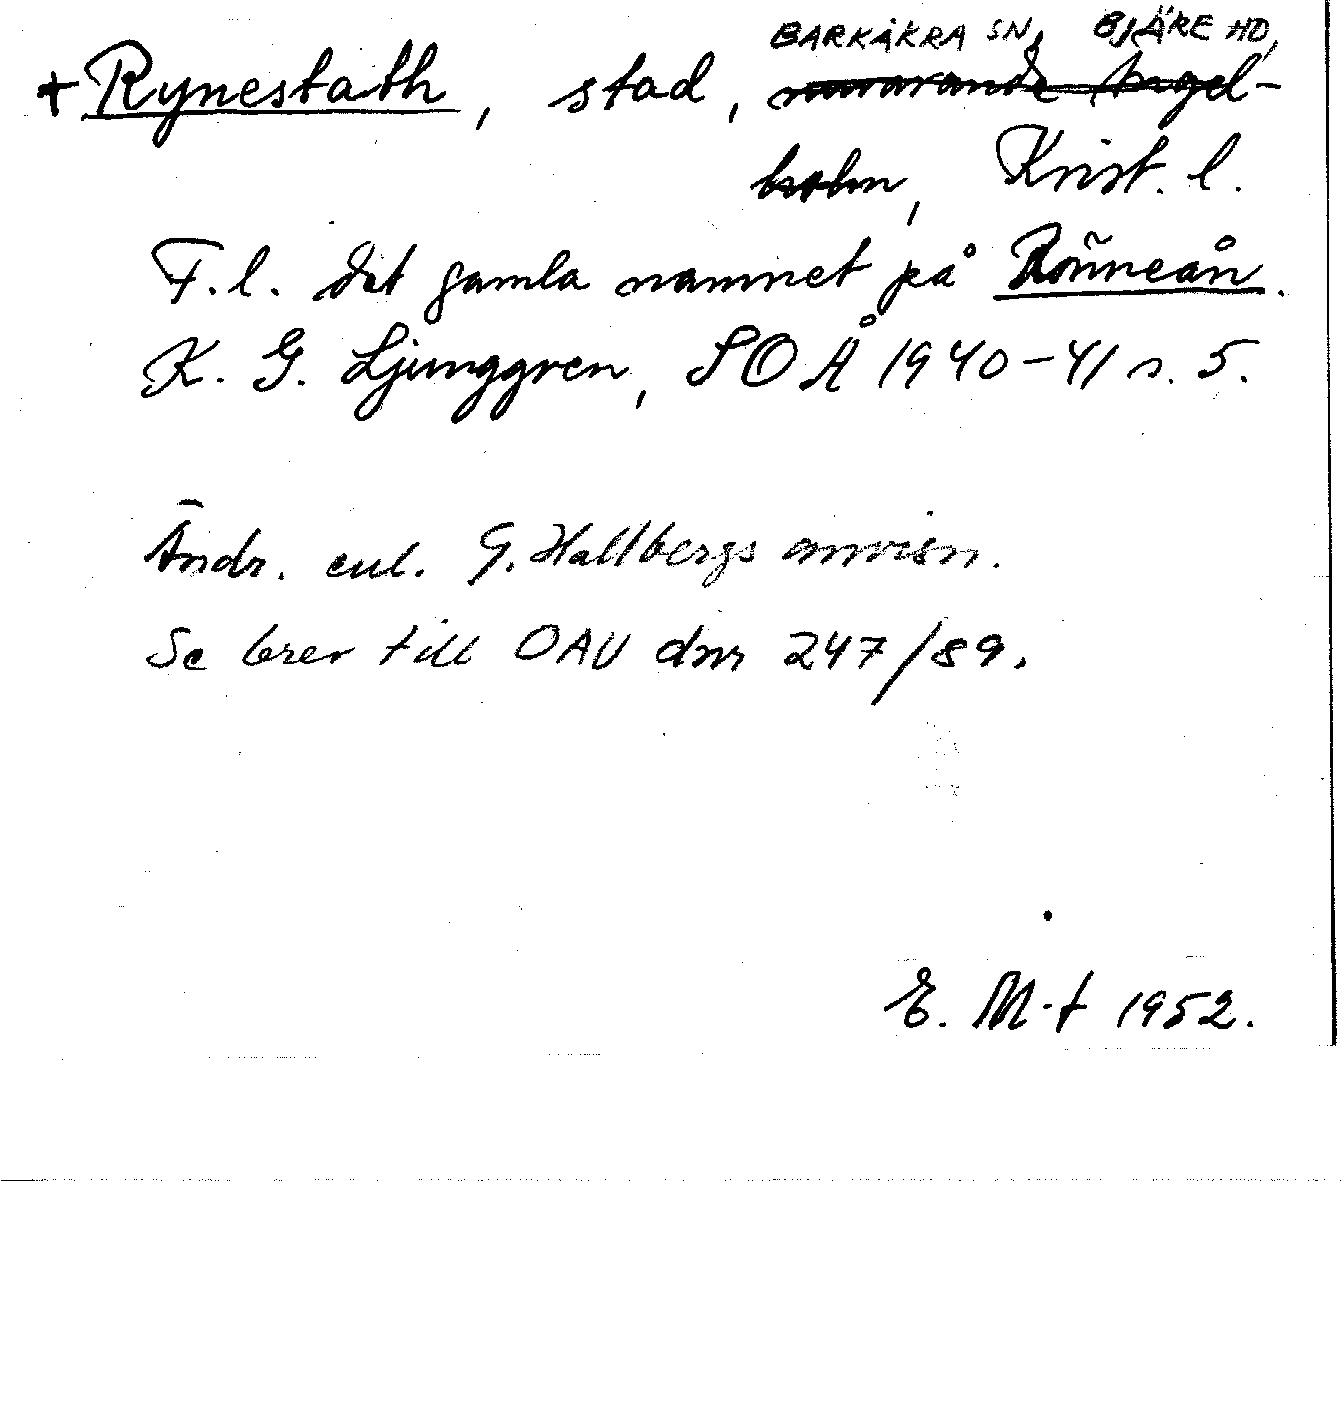 BARKÅKRA SN, BJÄRE HD,
+ Rynestath, stad, nuvarande Ängel-
holm, Krist. l.
F. l. det gamla namnet på Rönneån.
K. G. Ljunggren, SOÅ 1940–41 s. 5.
Ändr. enl. G. Hallbergs anvisn.
Se brev till OAU dnr 247/89.
E. M-t 1952.